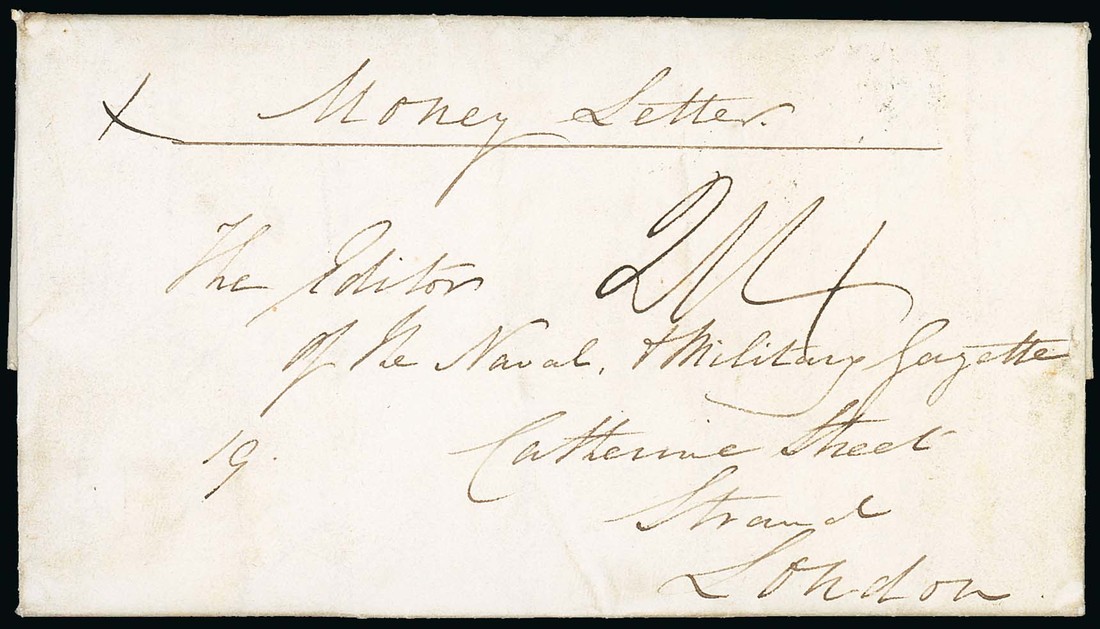 Money Letter.
The Editor
of the Naval, & Military Gazette
19. Catherine Street
Strand
London.